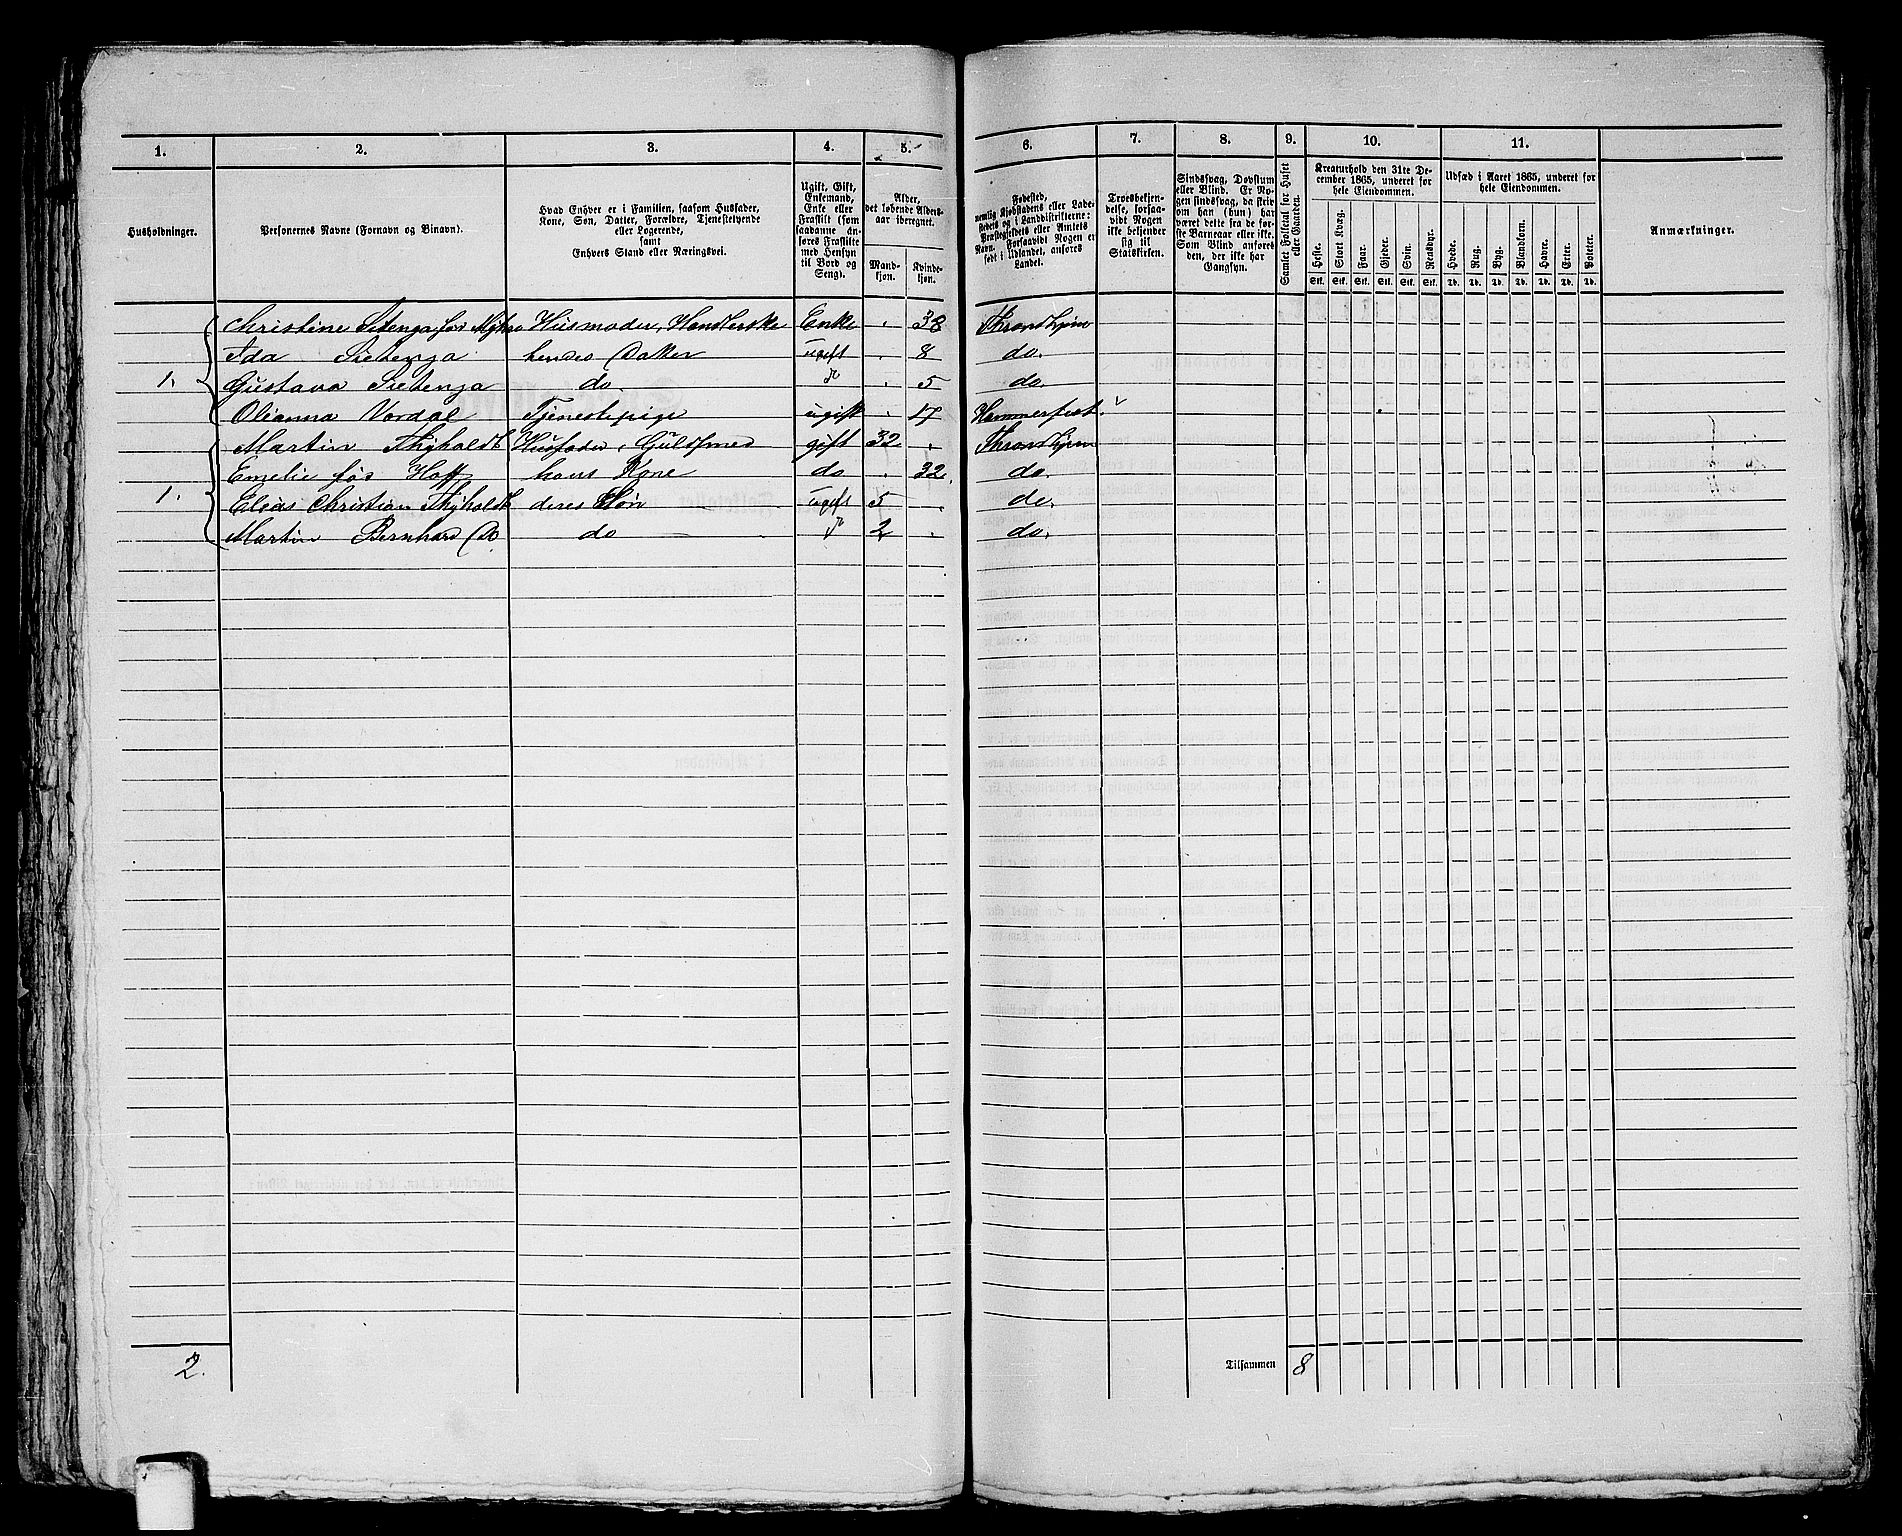 1. 2. 3. 4. 5. 6. 7. 8. 9. 10. 11.
Husholdninger.
Personernes Navne (Fornavn og Binavn).
Hvad Enhver er i Familien, saasom Husfader,
Kone, Søn, Datter, Forældre, Tjenestetyende
eller Logerende,
samt
Enhvers Stand eller Næringsvei.
Ugift, Gift,
Enkemand,
Enke eller
Fraskilt (som
saadanne an-
føres Fraskilte
med Hensyn
til Bord og
Seng).
Alder,
det løbende Alders-
aar iberegnet.
Mand-
kjøn.
Kvinde-
kjøn.
Fødested,
nemlig Kjøbstadens eller Lade-
stedets og i Landdistrikterne:
Præstegjeldets eller Amtets
Navn. Forsaavidt Nogen er
født i Udlandet, anføres
Landet.
Troesbekjen-
delse, forsaa-
vidt Nogen
ikke bekjender
sig til
Statskirken.
Sindssvag, Døvstum
eller Blind. Er No-
gen sindssvag, da skriv
om han (hun) har
været dette fra de før-
ste Barneaar eller ikke.
Som Blind anføres
den, der ikke har
Gangsyn.
Samlet Folketal for Huset
eller Gaarden.
Kreaturhold den 31te De-
cember 1865, underet for
hele Eiendommen.
Heste. Stort Kvæg. Faar. Gjeder. Svin. Rensdyr.
Stk. Stk. Stk. Stk. Stk. Stk.
Udsæd i Aaret 1865, underet for
hele Eiendommen.
Hvede. Rug. Byg. Blandkorn. Havre. Erter. Poteter.
Td. Td. Td. Td. Td. Td. Td.
Anmærkninger.
Christine Husmoder, Handlerske Enke . 38 Throndhjem
Ida Sietenga hendes Datter ugift . 8 do.
1. Gustava Sietenga do . 5 do.
Olianna Vordal Tjenestepige ugift . 17 Hammerfest
Martin Thyholdt Husfader, Guldsmed gift 32 . Throndhjem
Emelie fös Hoff hans Kone do . 32. do.
1. Elias Christian Thyholdt deres Søn ugift 5 . do.
Martin Bernhard Do do 2 . do.
2. Tilsammen 8